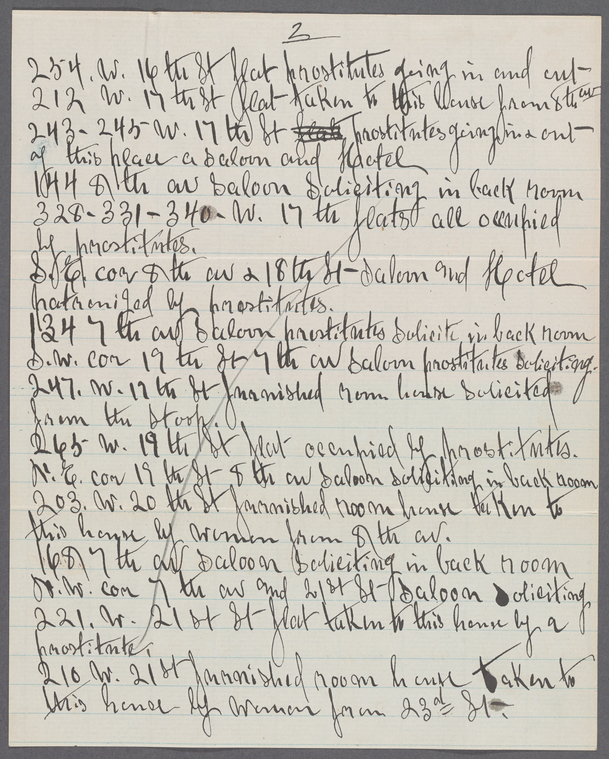 2
254. W. 16th St flat prostitutes going in and out
212 W. 17th St flat taken to this house from 8th av
243-245 W. 17th St prostitutes going in & out
of this place a Saloon and Hotel
144 8th av Saloon Soliciting in back room
328-331-340-W. 17th flats all occupied
by prostitutes.
S.E. cor 8th av & 18th St-Saloon and Hotel
patronized by prostitutes.
134 7th av Saloon prostitutes Solicite in back room
S.W. cor 19th St 7th av Saloon prostitutes Soliciting.
247. W. 19th St furnished room house Solicited
from the stoop.
265 W. 19th St flat occupied by prostitutes.
N.E. cor 19th St 8th av Saloon Soliciting in back room
203. W. 20th St furnished room house taken to
this house by women from 8th av.
168 7th av Saloon Soliciting in back room
N.W. cor 7th av and 21st St Saloon Soliciting
221. W. 21st St flat taken to this house by a
prostitute.
210 W. 21st furnished room house taken to
this house by woman from 23rd St-